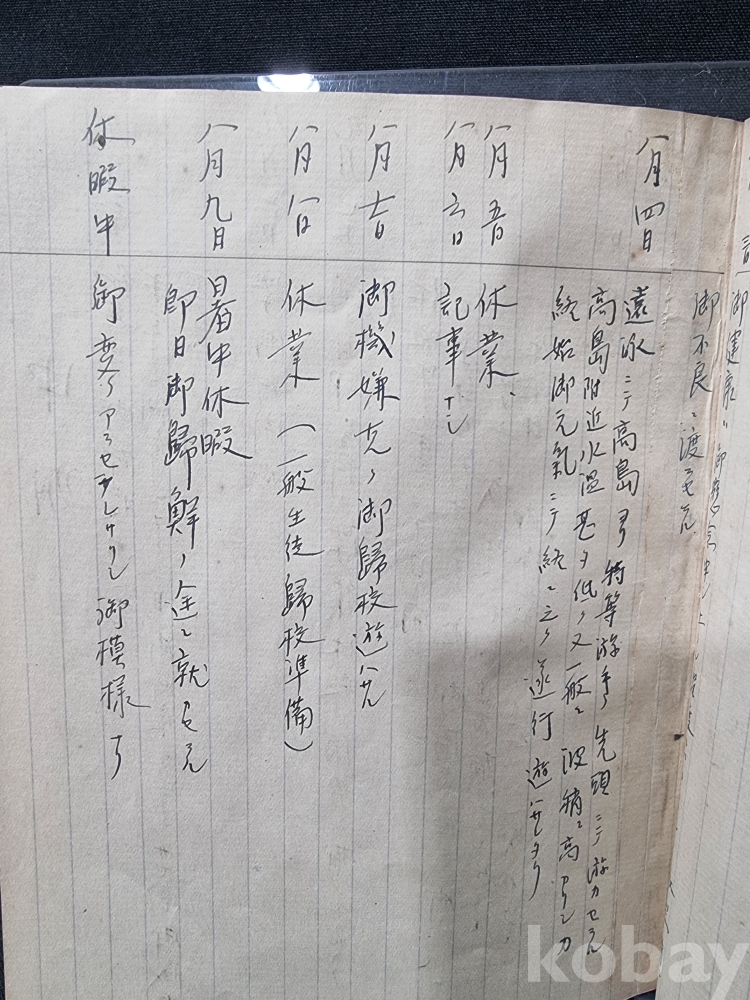 御不良ニ渡セラル
八月四日
遠泳ニテ高島ヨリ特等游手ノ先頭ニテ游カセラル
高島附近水温甚タ低ク又一般ニ波稍々高カリシカ
終始御元氣ニテ終ニ之ヲ遂行遊ハサレタリ
八月五日 休業、
八月六日 記事ナシ
八月七日 御機嫌克ク御歸校遊ハサル
八月八日 休業(一般生徒歸校準備)
八月九日 暑中休暇
即日御歸鮮ノ途ニ就カセラル
休暇中 御變リアラセラレサリシ御模様ナリ
kobay